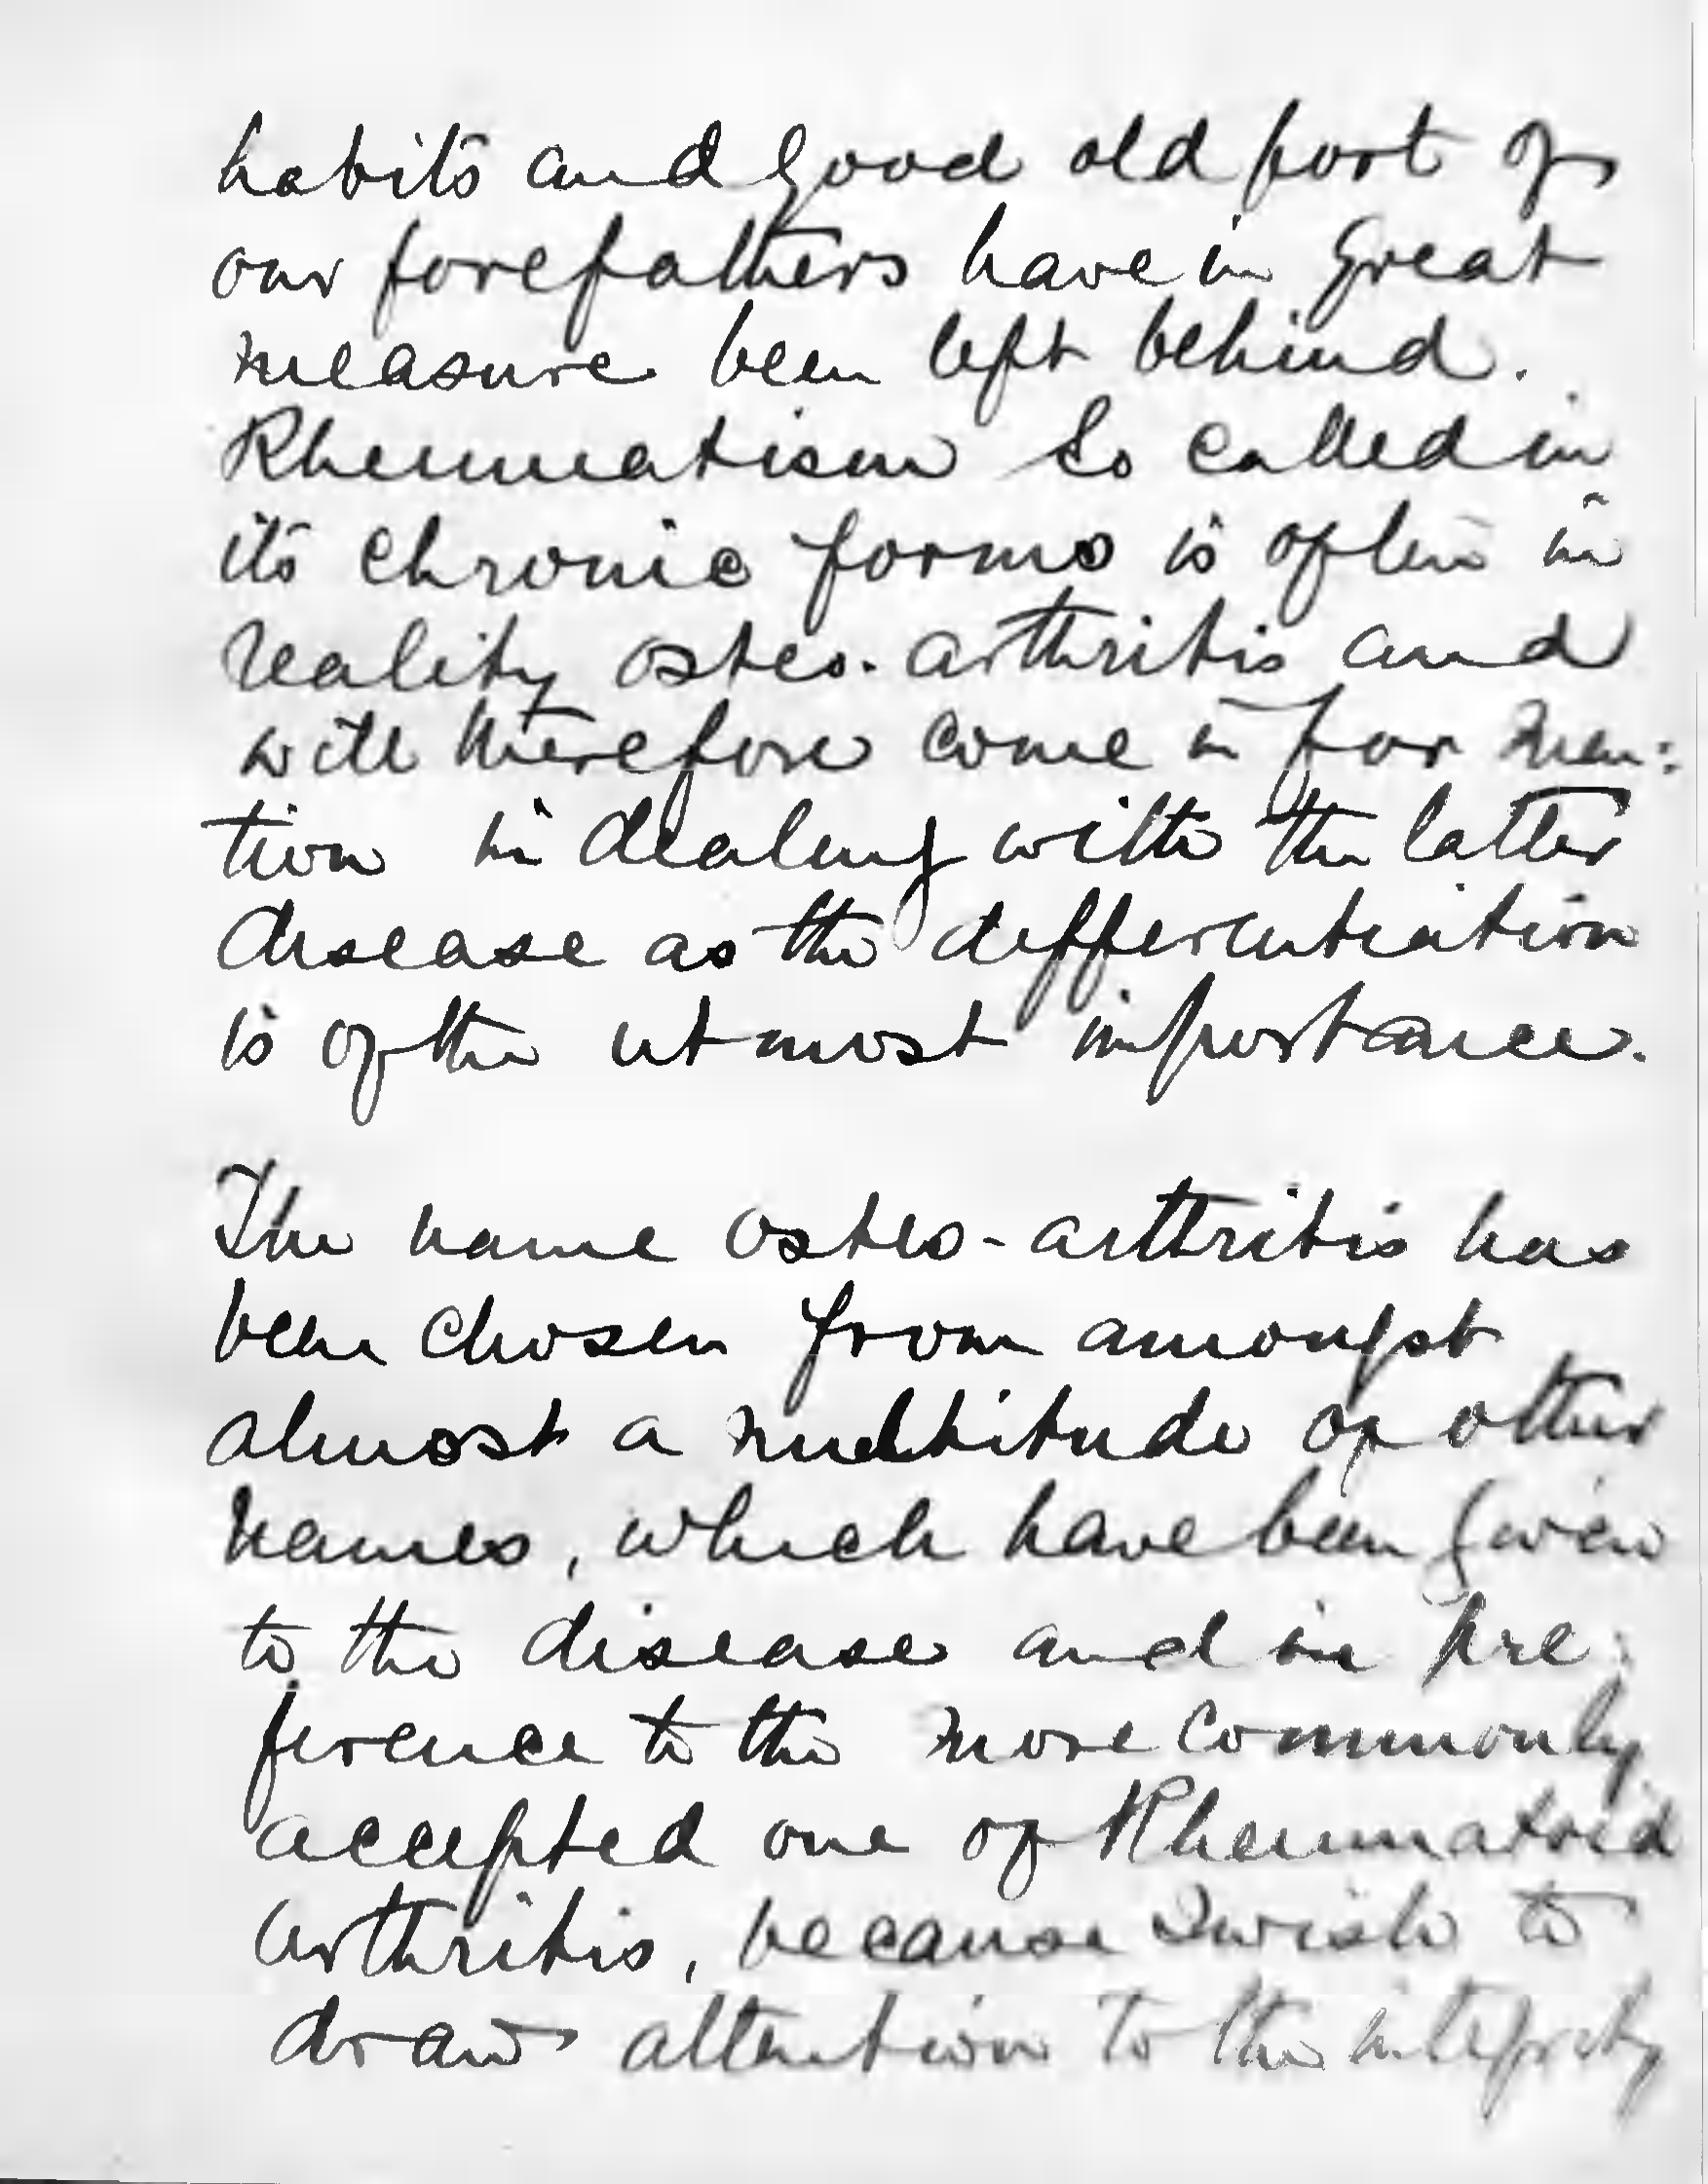 habits and good old port of
our forefathers have in great
measure been left behind.
Rheumatism so called in
its chronic forms is often in
reality osteo-arthritis and
will therefore come in for men:
tion in dealing with the latter
disease as the differentiation
is of the utmost importance.
The name osteo-arthritis has
been chosen from amongst
almost a multitude of other
names, which have been given
to the disease and in pre:
ference to the more commonly
accepted one of Rheumatoid
arthritis, because I wish to
draw attention to the integrity